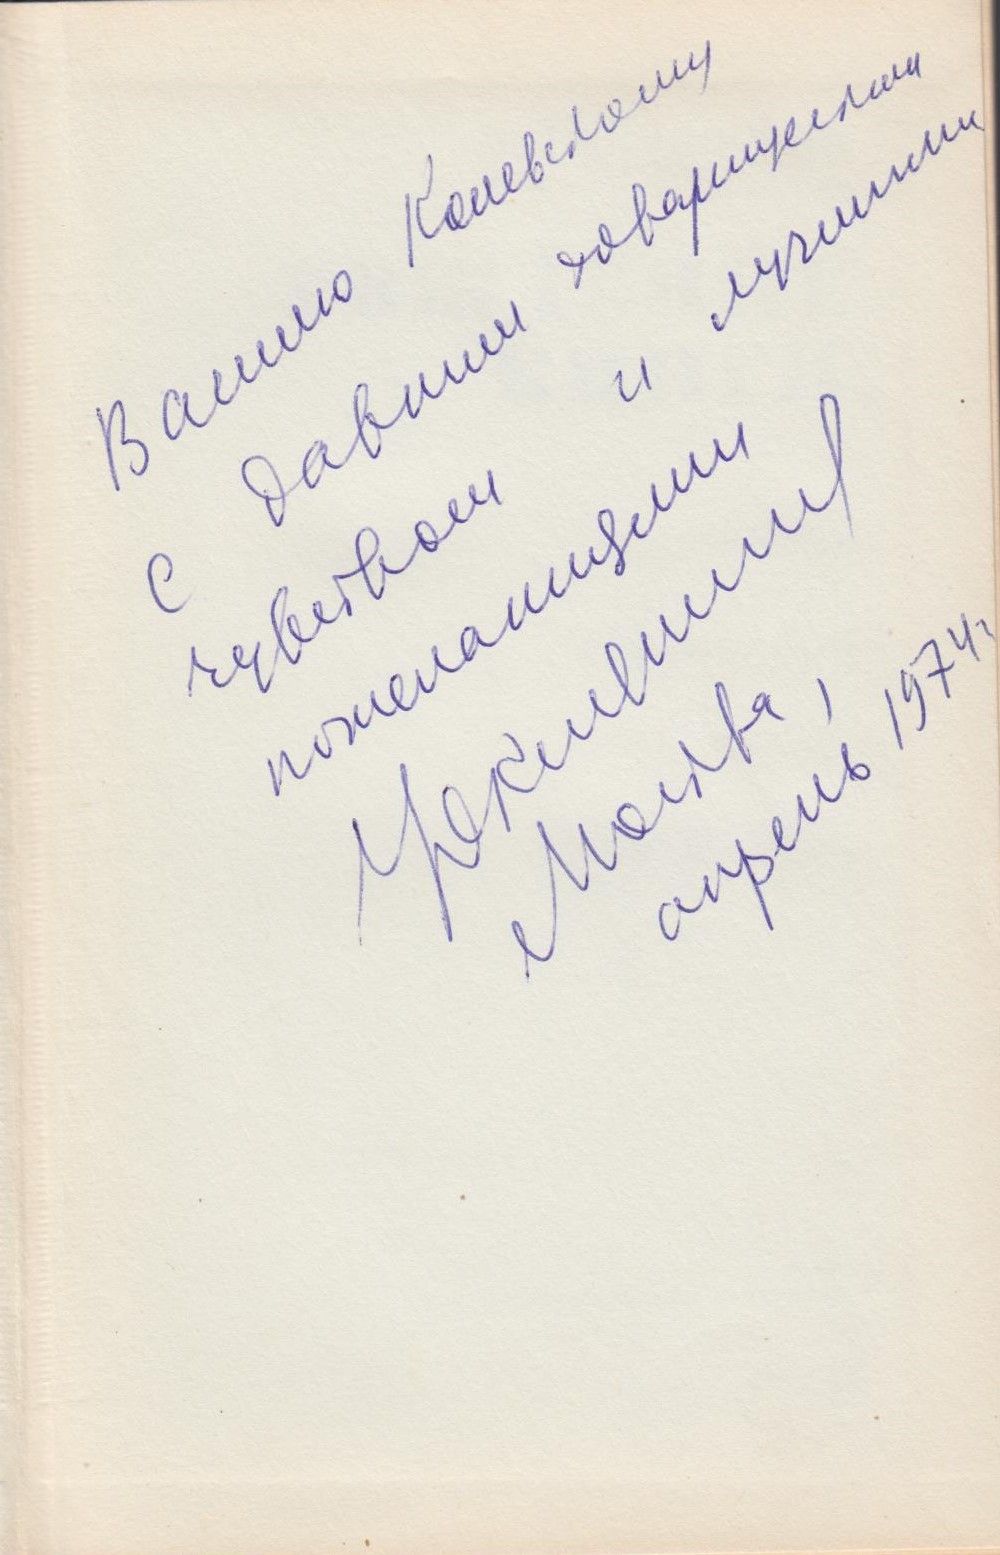 Васило Колевскому
с давним товарищеским
чувством и лучшими
пожеланиями
Москва,
апрель 1974 г.